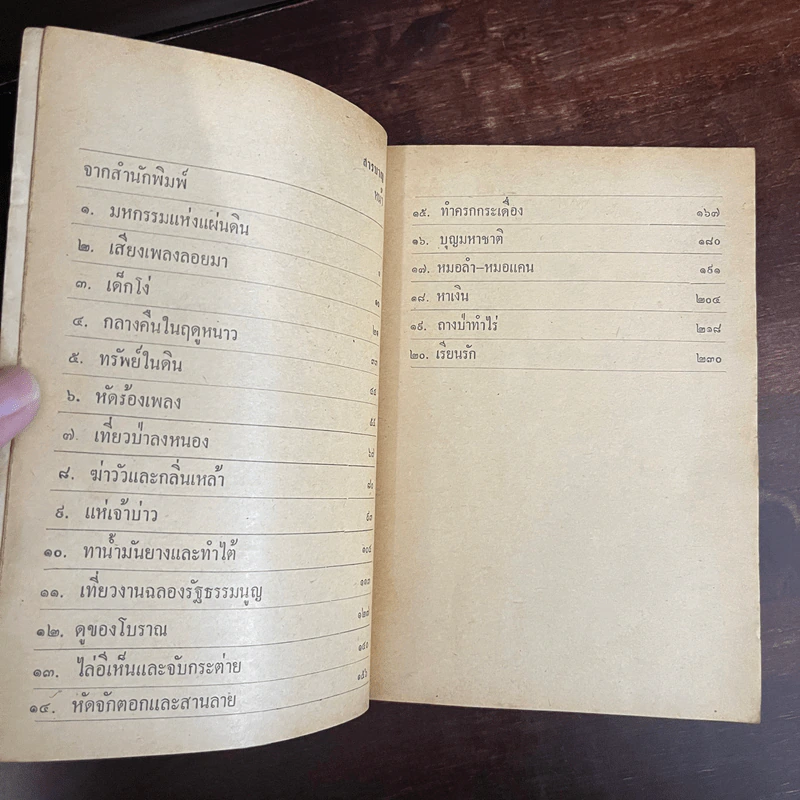 สารบาญ
หน้า
จากสำนักพิมพ์
๑. มหกรรมแห่งแผ่นดิน
๒. เสียงเพลงลอยมา
๓. เด็กโง่
๔. กลางคืนในฤดูหนาว
๕. ทรัพย์ในดิน
๖. หัดร้องเพลง
๗. เที่ยวป่าลงหนอง
๘. ฆ่าวัวและกลิ่นเหล้า
๙. แห่เจ้าบ่าว
๑๐. ทาน้ำมันยางและทำไต้
๑๑. เที่ยวงานฉลองรัฐธรรมนูญ
๑๒. ดูของโบราณ
๑๓. ไล่อีเห็นและจับกระต่าย
๑๔. หัดจักตอกและสานลาย
๑๕. ทำครกกระเดื่อง ๑๖๗
๑๖. บุญมหาชาติ ๑๘๐
๑๗. หมอลำ–หมอแคน ๑๙๑
๑๘. หาเงิน ๒๐๔
๑๙. ถางป่าทำไร่ ๒๑๘
๒๐. เรียนรัก ๒๓๐